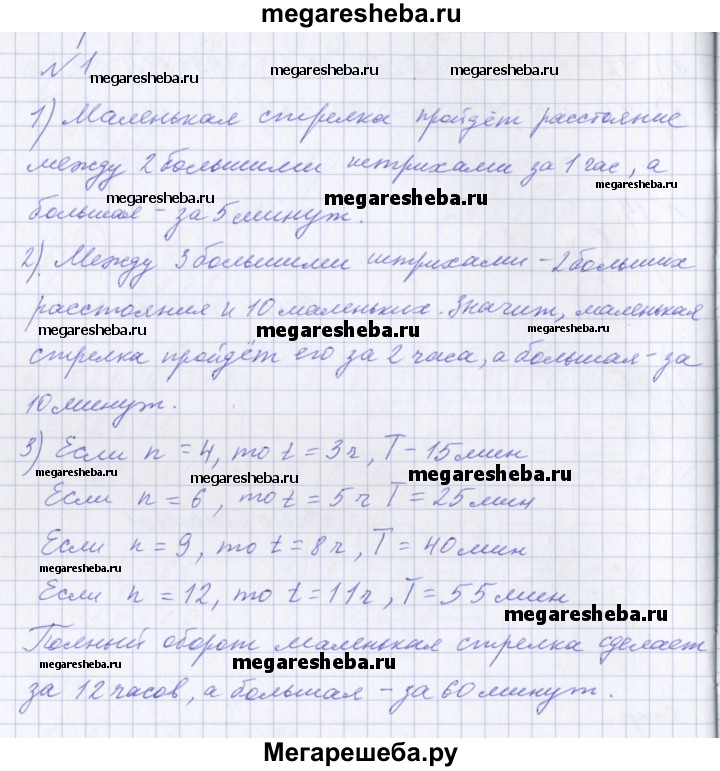 megaresheba.ru
№1
megaresheba.ru megaresheba.ru megaresheba.ru
1) Маленькая стрелка пройдёт расстояние
между 2 большими штрихами за 1 час, а
megaresheba.ru
megaresheba.ru
большая - за 5 минут.
2). Между 3 большими штрихами - 2 больших
расстояния и 10 маленьких. Значит, маленькая
megaresheba.ru megaresheba.ru megaresheba.ru
стрелка пройдёт его за 2 часа, а большая - за
10 минут.
3) Если n = 4, то t = 3 ч, T - 15 мин
megaresheba.ru megaresheba.ru megaresheba.ru
Если n = 6, то t = 5 ч T = 25 мин
Если n = 9, то t = 8 ч, T = 40 мин
megaresheba.ru megaresheba.ru
Если n = 12, то t = 11 ч, T = 55 мин
megaresheba.ru
Полный оборот маленькая стрелка сделает
megaresheba.ru megaresheba.ru megaresheba.ru
за 12 часов, а большая - за 60 минут.
Мегарешеба.ру